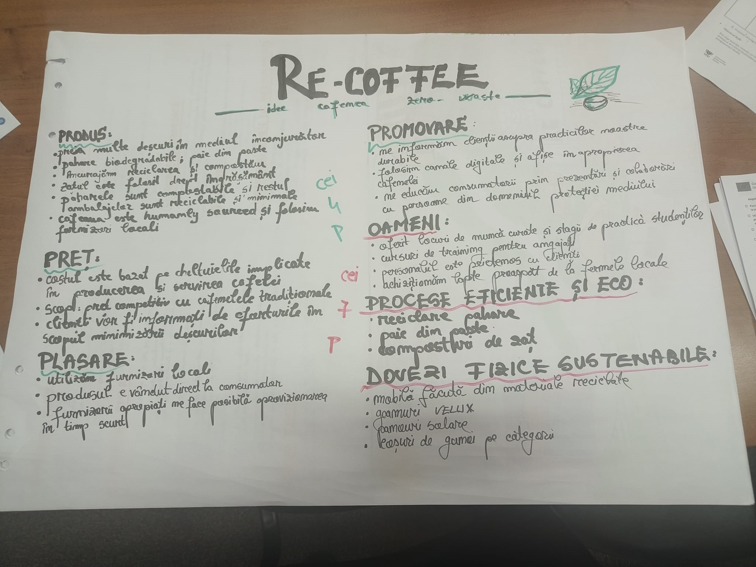 RE-COFFEE
idee cafenea zero-waste
PRODUS:
• prea multe deșeuri în mediul înconjurător
• pahare biodegradabile; paie din paste
• încurajăm reciclarea și compostul
• zațul este folosit drept îngrășământ
• paharele sunt compostabile și restul
ambalajelor sunt reciclabile și minimale
• cafeaua este humanly sourced și folosim
furnizori locali
PREȚ:
• costul este bazat pe cheltuielile implicate
în producerea și servirea cafelei
• scop: preț competitiv cu cafenelele tradiționale
• clienții vor fi informați de eforturile în
scopul minimizării deșeurilor
PLASARE:
• utilizăm furnizori locali
• produsul e vândut direct la consumator
• furnizorii apropiați ne face posibilă aprovizionarea
în timp scurt
cei
4
P
cei
7
P
PROMOVARE:
• ne informăm clienții asupra practicilor noastre
durabile
• folosim canale digitale și afișe în apropierea
cafenelei
• ne educăm consumatorii prin prezentări și colaborări
cu persoane din domeniul protecției mediului
OAMENI:
• oferit locuri de muncă curate și stagii de practică studenților
• cursuri de training pentru angajați
• personalul este prietenos cu clienții
• achiziționăm lapte proaspăt de la fermele locale
PROCESE EFICIENTE ȘI ECO:
• reciclare pahare
• paie din paste
• composturi de zaț
DOVEZI FIZICE SUSTENABILE:
• mobilă făcută din materiale reciclate
• geamuri VELUX
• panouri solare
• coșuri de gunoi pe categorii